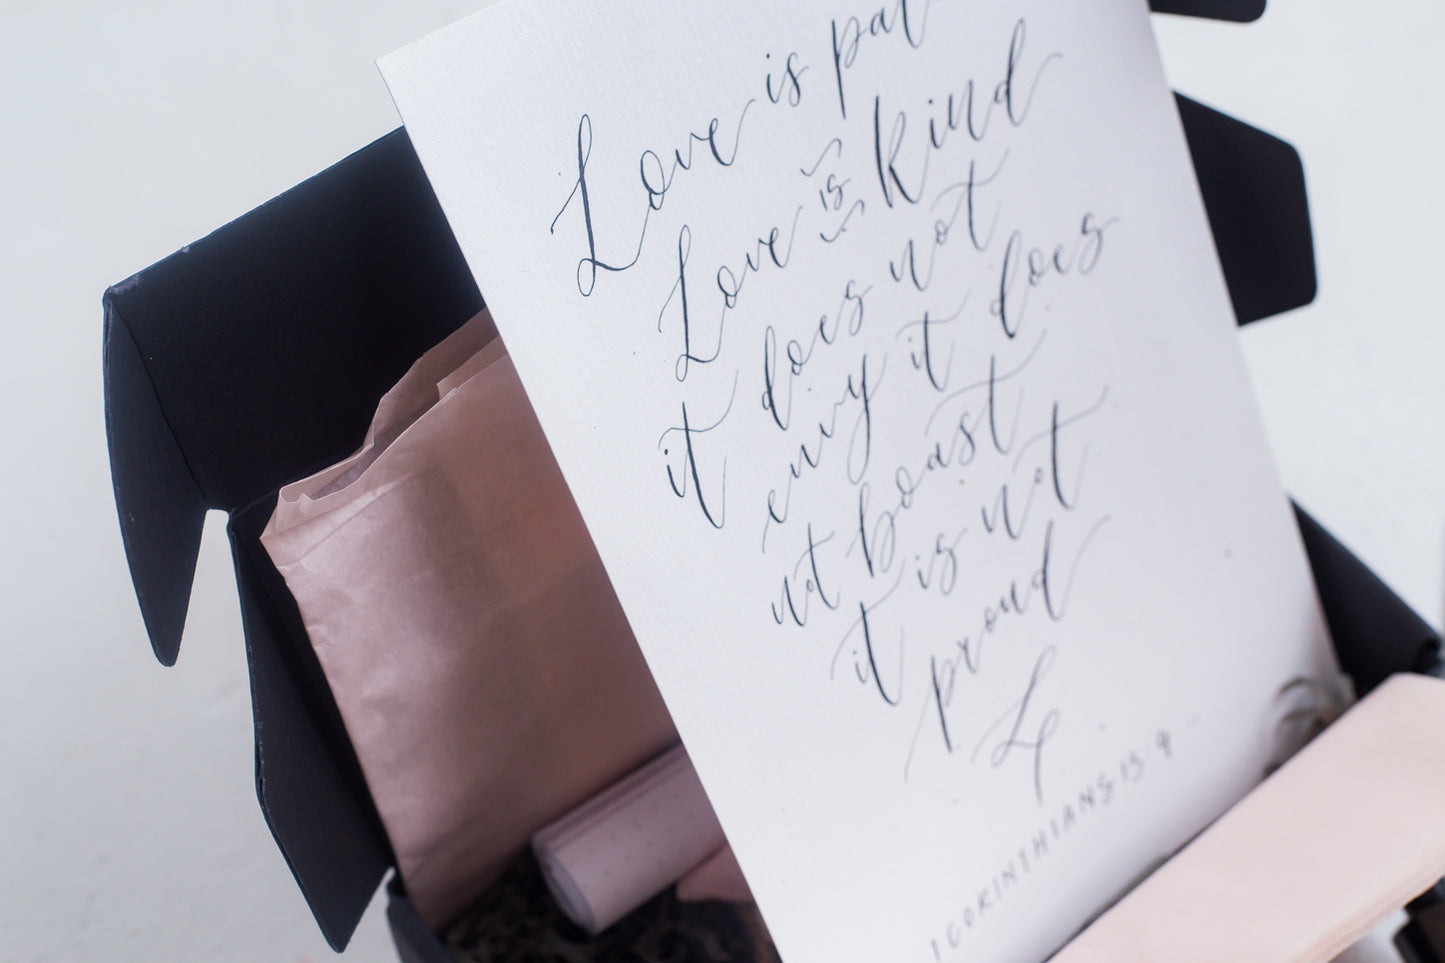 Love is
Love is kind
it does not
envy it does
not boast
it is not
proud
1 CORINTHIANS 13 4